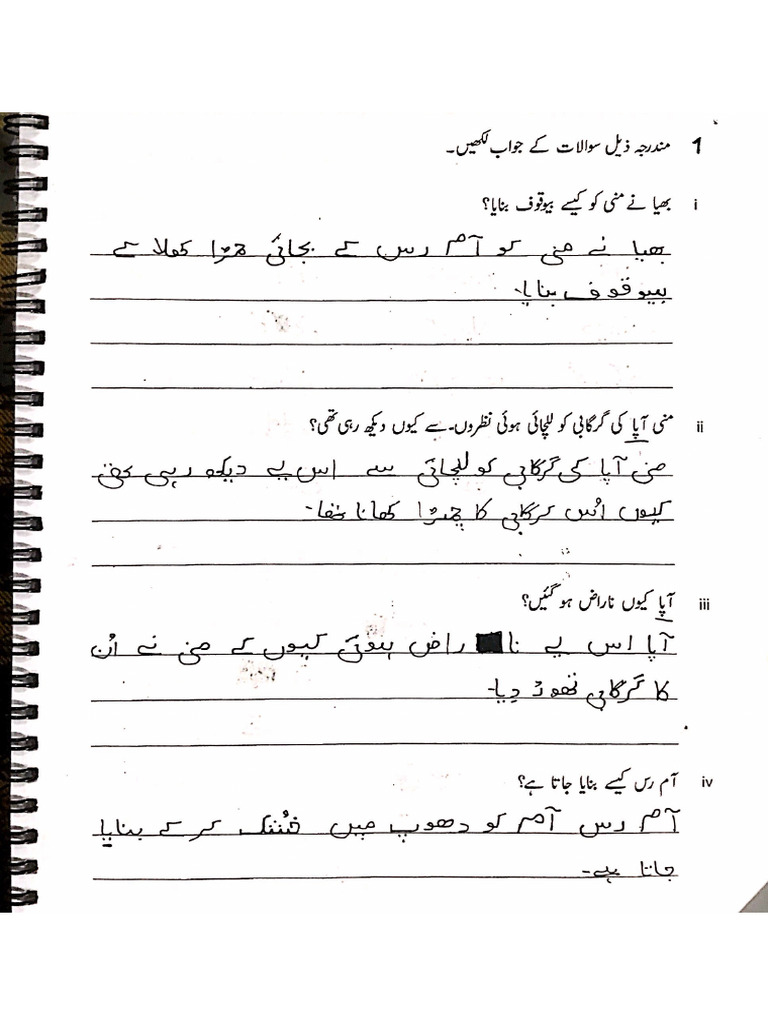 1 مندرجہ ذیل سوالات کے جواب لکھیں۔
i بھیا نے منی کو کیسے بیوقوف بنایا؟
بھیا نے منی کو آم رس کے بجائی چمڑا کھلا کے
بیوقوف بنایا۔
ii منی آپا کی گرگابی کو للچائی ہوئی نظروں۔ سے کیوں دیکھ رہی تھی؟
منی آپا کی گرگابی کو للچائی سے اس لیے دیکھ رہی تھی
کیوں اُس گرگابی کا چمڑا کھانا تھا۔
iii آپا کیوں ناراض ہو گئیں؟
آپا اس لیے نا راض ہوئی کیوں کے منی نے اُن
کا گرگابی تھوڑ دِیا۔
iv آم رس کیسے بنایا جاتا ہے؟
آم رس آم کو دھوپ میں خُشک کر کے بنایا
جاتا ہے۔